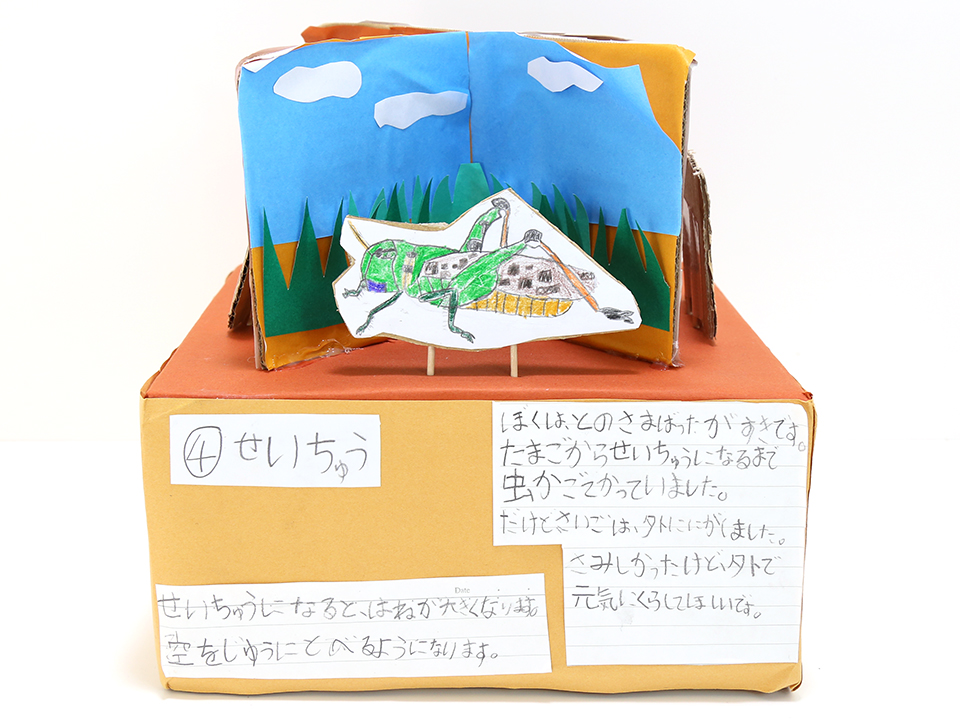 ④せいちゅう
ぼくは、とのさまばったがすきです。
たまごからせいちゅうになるまで
虫かごでかっていました。
だけどさいごは、外ににがしました。
さみしかったけど、外で
元気にくらしてほしいです。
Date
せいちゅうになると、はねが大きくなります。
空をじゆうにとべるようになります。